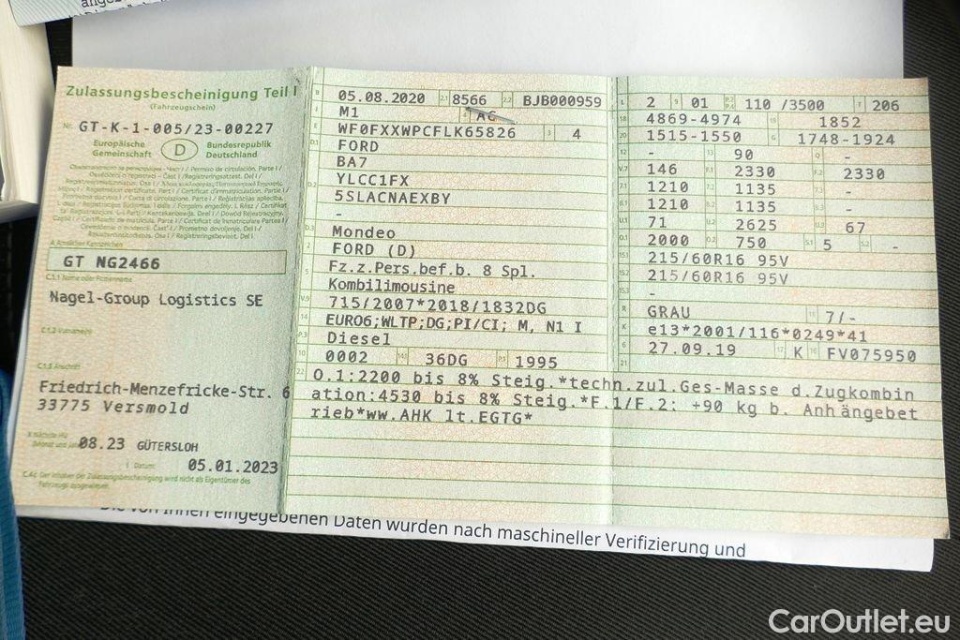 Zulassungsbescheinigung Teil I
(Fahrzeugschein)
GT-K-1-005/23-00227
Europäische Gemeinschaft
D
Bundesrepublik Deutschland
GT NG2466
Nagel-Group Logistics SE
Friedrich-Menzefricke-Str. 6
33775 Versmold
08.23 GÜTERSLOH
05.01.2023
C.4c Der Inhaber der Zulassungsbescheinigung wird nicht als Eigentümer des
Fahrzeugs ausgewiesen.
05.08.2020 8566 BJB000959
M1 AC
WF0FXXWPCFLK65826 4
FORD
BA7
YLCC1FX
5SLACNAEXBY
-
Mondeo
FORD (D)
Fz.z.Pers.bef.b. 8 Spl.
Kombilimousine
715/2007*2018/1832DG
EURO6;WLTP;DG;PI/CI; M, N1 I
Diesel
0002 36DG 1995
2 01 110 /3500 206
4869-4974 1852
1515-1550 1748-1924
- 90 -
146 2330 2330
1210 1135 -
1210 1135 -
71 2625 67
2000 750 5 -
215/60R16 95V
215/60R16 95V
-
GRAU 7/-
e13*2001/116*0249*41
27.09.19 K FV075950
O.1:2200 bis 8% Steig.*techn.zul.Ges-Masse d.Zugkombin
ation:4530 bis 8% Steig.*F.1/F.2: +90 kg b. Anhängebet
rieb*ww.AHK lt.EGTG*
Die von Ihnen eingegebenen Daten wurden nach maschineller Verifizierung und
CarOutlet.eu